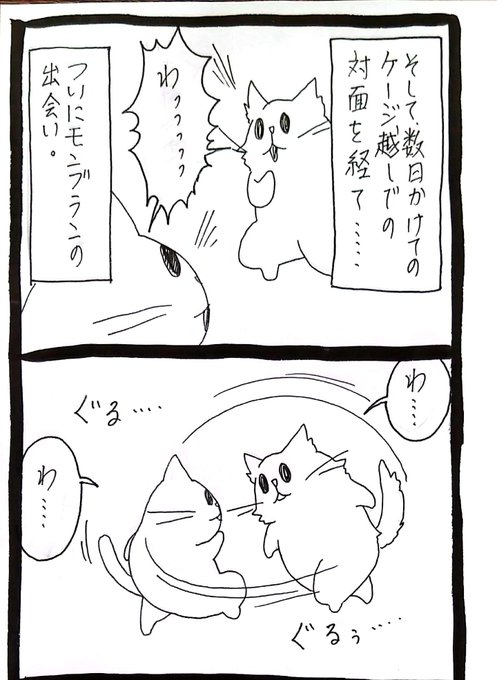 そして、数日かけての
ケージ越しでの
対面を経て……
わっっっっっ
ついにモンブランの
出会い。
わ……
ぐる‥‥
わ……
ぐるぅ‥‥